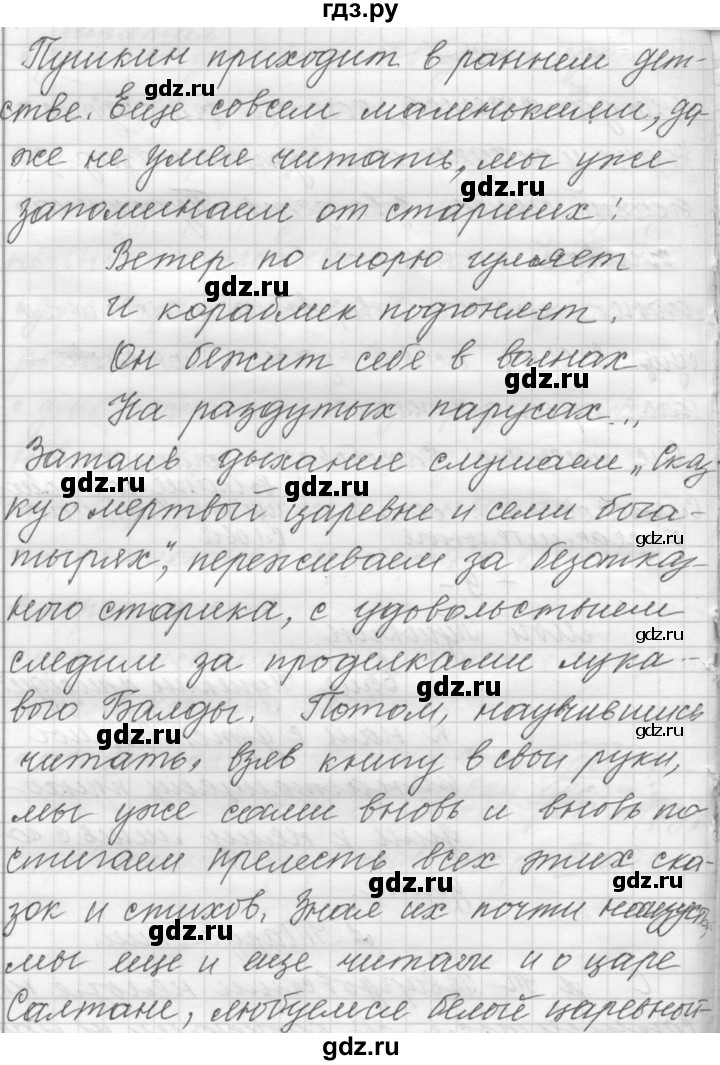 гдз.ру
Пушкин приходит в раннем дет-
gdz.ru
стве. Еще совсем маленькими, да-
gdz.ru
же не умея читать, мы уже
gdz.ru
запоминаем от старших:
Ветер по морю гуляет
gdz.ru
И кораблик подгоняет.
gdz.ru
Он бежит себе в волнах
gdz.ru
На раздутых парусах...
Затаив дыхание слушаем „Сказ-
gdz.ru
gdz.ru
ку о мертвой царевне и семи бога-
gdz.ru
тырях", переживаем за безотказ-
ного старика, с удовольствием
gdz.ru
следим за проделками лука-
gdz.ru
вого Балды. Потом, научившись
gdz.ru
gdz.ru
читать, взяв книгу в свои руки,
мы уже сами вновь и вновь по
стигаем прелесть всех этих ска-
gdz.ru
gdz.ru
зок и стихов. Зная их почти наизусть,
gdz.ru
мы еще и еще читаем и о царе
gdz.ru
Салтане, любуемся белой царевной-
gdz.ru